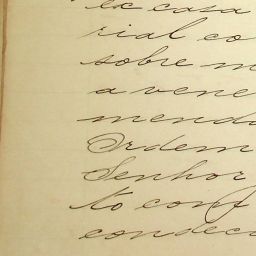 ex casa
rial co
sobre m
a vene
menda
Ordem
Senhor
to conf
condec